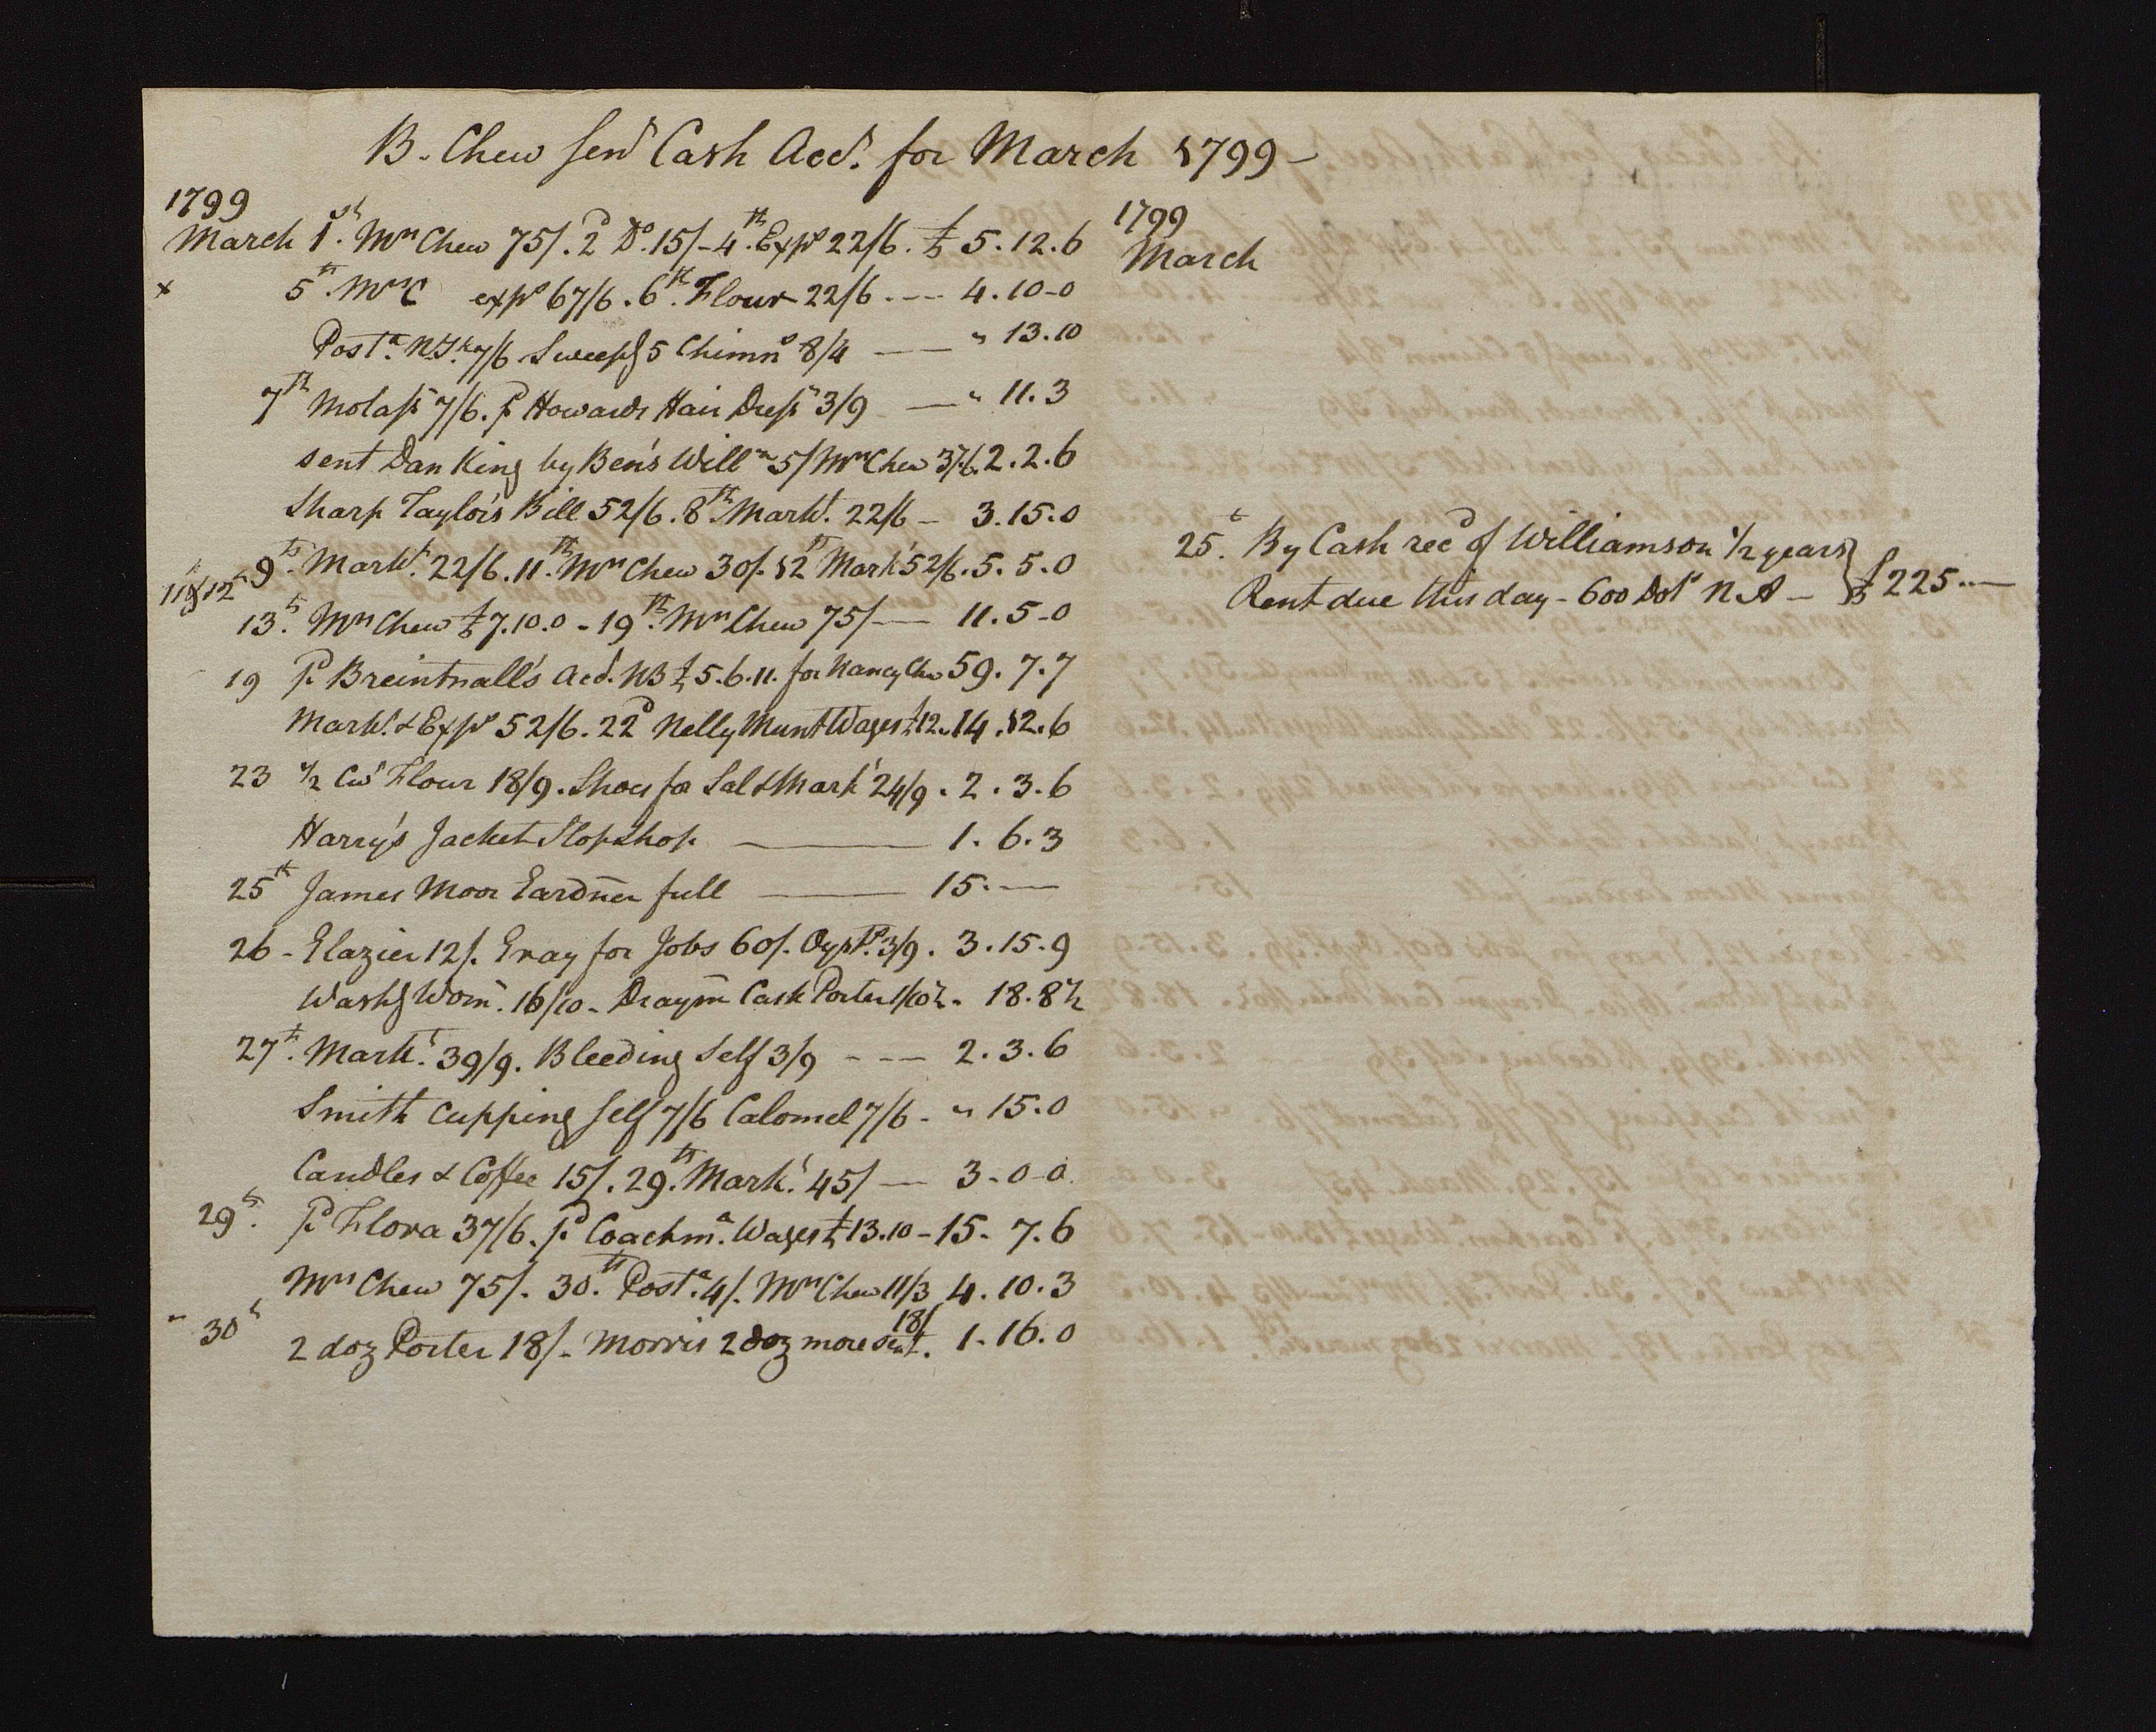 B. Chew Senr Cash Acct. for March 1799 –
1799
March 1st. Mrs Chew 75/. 2d Do. 15/ – 4th. Exps 22/6. £ 5. 12. 6
x 5th. Mrs C exps 67/6. 6th. Flour 22/6 . –– 4. 10 – 0
Posta. 7/6 Sweepg 5 Chimns 8/4 —— " 13. 10
7th Molass 7/6. pd Howards Hair Dressr 3/9 —— " 11. 3
sent Dan King by Ben's Willm 5/ Mrs Chew 37/6. 2. 2. 6
Sharp Taylor's Bill 52/6. 8th. Markt. 22/6 – 3. 15. 0
11 & 12th 9th. Markt. 22/6. 11th. Mrs Chew 30/. 12th Markt 52/6. 5. 5. 0
13th. Mrs Chew £7. 10. 0 – 19th. Mrs Chew 75/ — 11. 5 – 0
19 pd Breintnall's Acct. NB £5. 6. 11. for Nancy Chew 59. 7. 7
Markt. & Exps 52/6. 22d Nelly Munt Wages £12.. 14. 12. 6
23 1/2 Cwt Flour 18/9. Shoes for Sal & Mark 24/9. 2. 3. 6
Harry's Jacket Slopshop ——— 1. 6. 3
25th James Moor Gardner full ——— 15. —
26 – Glazier 12/. Gray for Jobs 60/. Oystrs. 3/9. 3. 15. 9
Washg Wom. 16/10 – Draym Cask Porter 1/10½ – 18. 8½
27th. Markt. 39/9. Bleeding Self 3/9 – – – 2. 3. 6
Smith Cupping Self 7/6 Calomel 7/6 – " 15. 0
Candles & Coffee 15/. 29th. Markt. 45/ — 3 – 0 – 0
29th. pd Flora 37/6. pd Coachmn. Wages £13. 10 – 15 – 7. 6
Mrs Chew 75/. 30th. Posta. 4/. Mrs Chew 11/3 4. 10. 3
30th 2 doz Porter 18/ – Morris 2 doz more sent. 18/ 1 – 16. 0
1799
March
25th. By Cash recd of Williamson 1/2 years
Rent due this day – 600 Dolrs N A – } £ 225..—